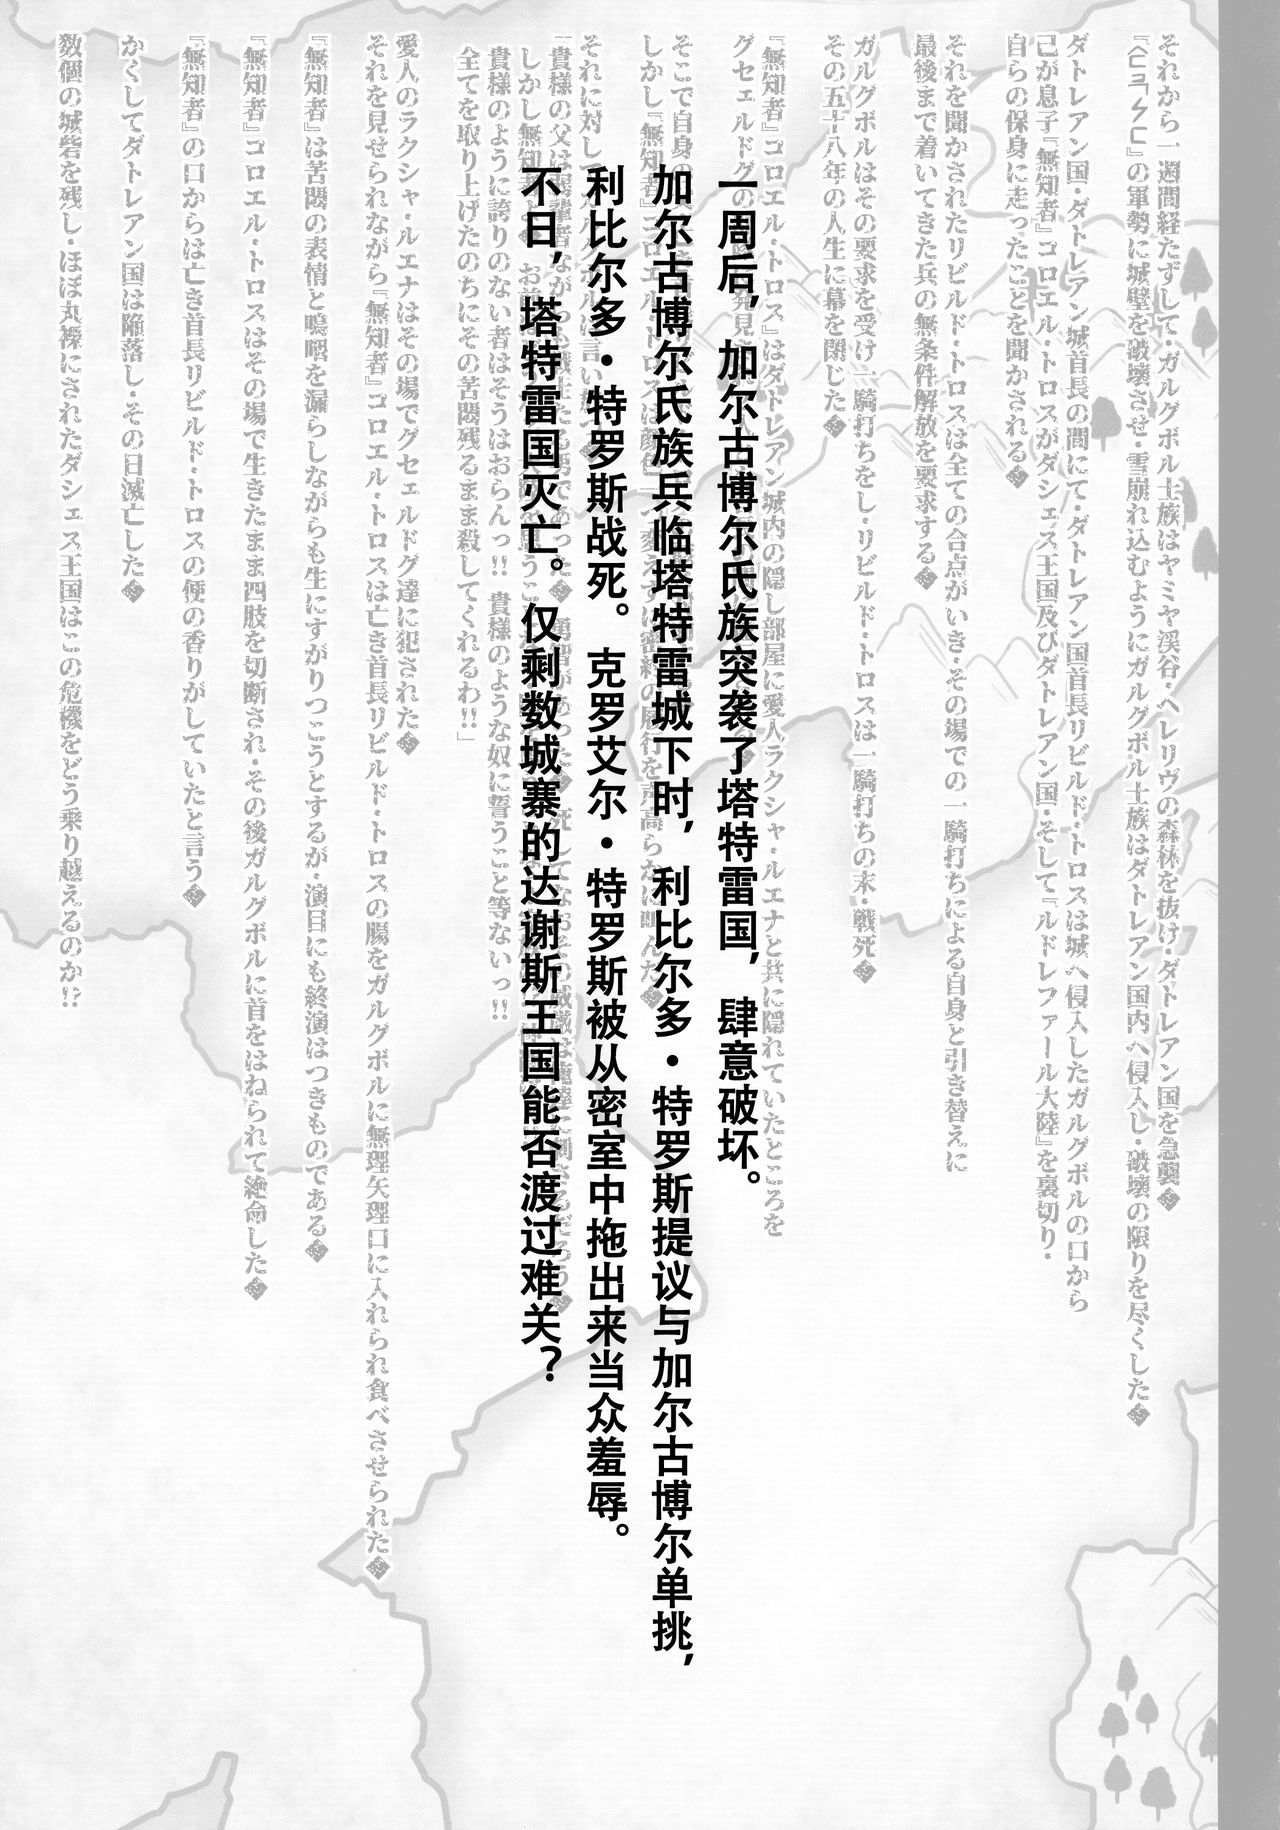 それから一週間経たずして・ガルグボル士族はヤミヤ渓谷・ヘレリヴの森林を抜け・ダトレアン国を急襲
の軍勢に城壁を破壊させ・雪崩れ込むようにガルグボル士族はダトレアン国内へ侵入し・破壊の限りを尽くした
ダトレアン国・ダトレアン城首長の間にて・ダトレアン国首長リビルド・トロスは城へ侵入したガルグボルの口から
己が息子『無知者』コロエル・トロスがダシェス王国及びダトレアン国・そして『ルドレファール大陸』を裏切り・
自らの保身に走ったことを聞かされる
それを聞かされたリビルド・トロスは全ての合点がいき・その場での一騎打ちによる自身と引き替えに
最後まで着いてきた兵の無条件解放を要求する
ガルグボルはその要求を受け一騎打ちをし・リビルド・トロスは一騎打ちの末・戦死
その五十八年の人生に幕を閉じた
『無知者』コロエル・トロス』はダトレアン城内の隠し部屋に愛人ラクシャ・ルエナと共に隠れていたところを
グセェルドグの
一周后，加尔古博尔氏族突袭了塔特雷国，肆意破坏。
そこで自身の
加尔古博尔氏族兵临塔特雷城下时，利比尔多·特罗斯提议与加尔古博尔单挑，
しかし『無知者』コロエル・トロスは顔色
を声高らかに叫んだ
それに対して
利比尔多·特罗斯战死。克罗艾尔·特罗斯被从密室中拖出来当众羞辱。
「貴様の父は
しかし無知者よ
不日，塔特雷国灭亡。仅剩数城寨的达谢斯王国能否渡过难关？
貴様のように誇りのない者はそうはおらんっ!!貴様のような奴に誓うこと等ないっ!!
全てを取り上げたのちにその苦悶残るまま殺してくれるわ!!」
愛人のラクシャ・ルエナはその場でグセェルドグ達に犯された
それを見せられながら『無知者』コロエル・トロスは亡き首長リビルド・トロスの腸をガルグボルに無理矢理口に入れられ食べさせられた
『無知者』は苦悶の表情と嗚咽を漏らしながらも生にすがりつこうとするが・演目にも終演はつきものである
『無知者』コロエル・トロスはその場で生きたまま四肢を切断され・その後ガルグボルに首をはねられて絶命した
『無知者』の口からは亡き首長リビルド・トロスの便の香りがしていたと言う
かくしてダトレアン国は陥落し・その日滅亡した
数個の城砦を残し・ほぼ丸裸にされたダシェス王国はこの危機をどう乗り越えるのか!?